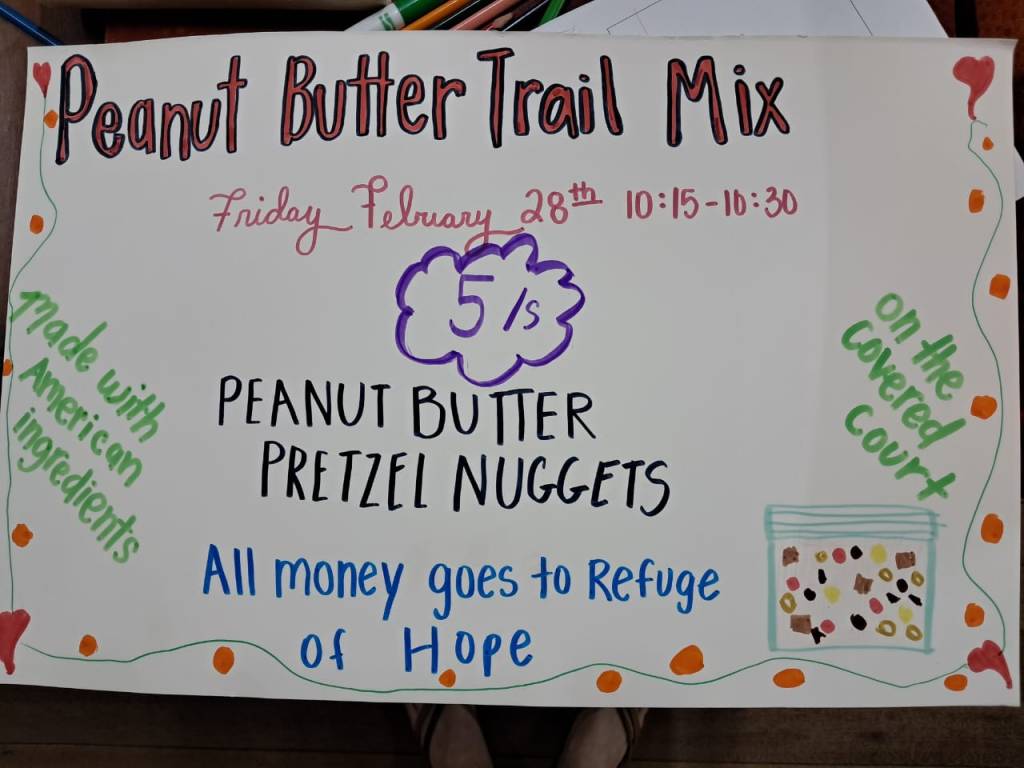 Peanut Butter Trail Mix
Friday February 28th 10:15-10:30
5/s
made with
American
ingredients
on the
Covered
Court
PEANUT BUTTER
PRETZEL NUGGETS
All money goes to Refuge
of Hope